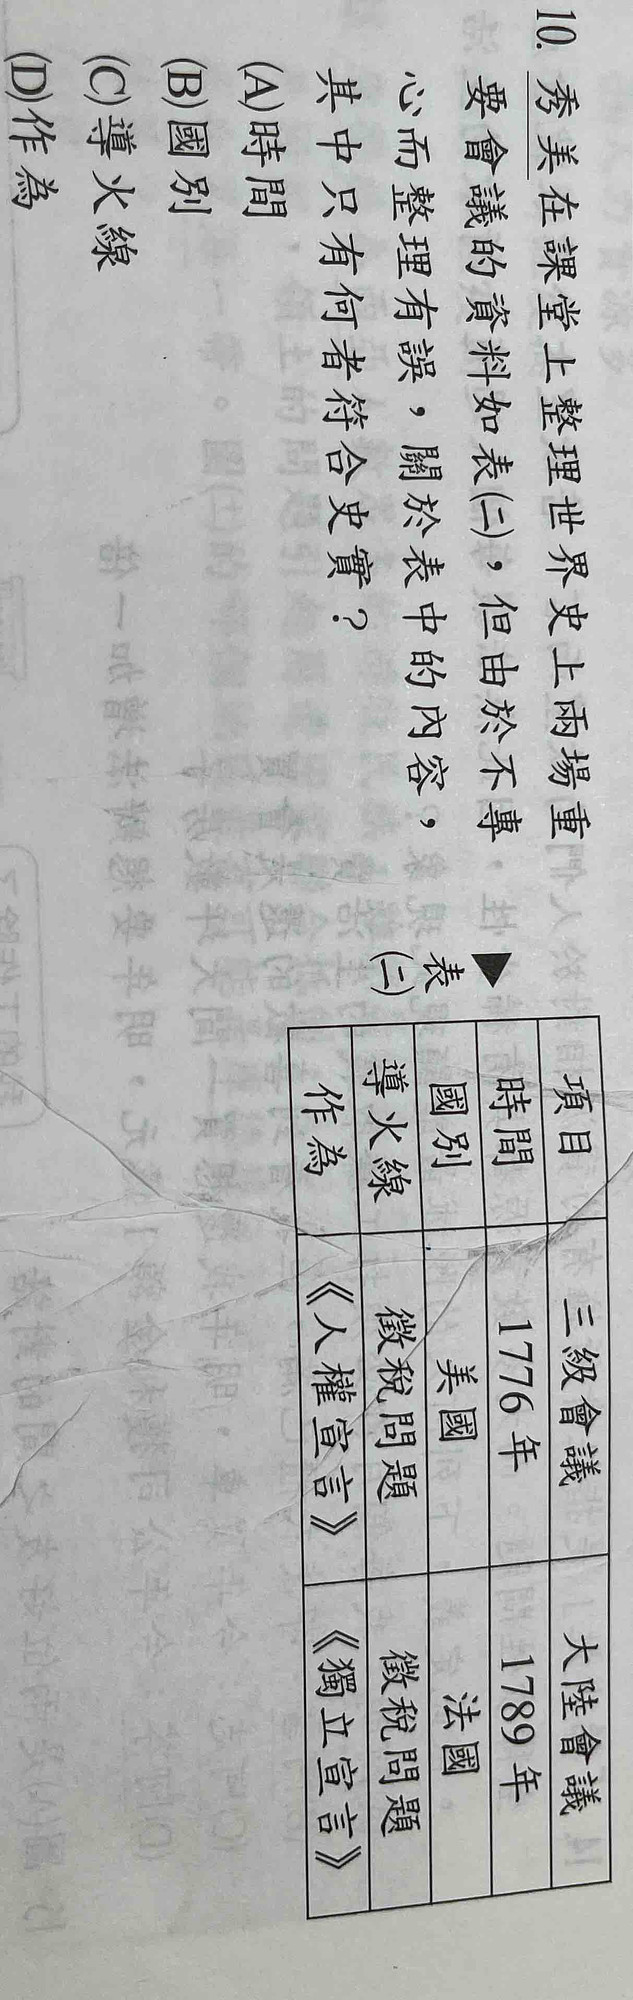 10. 秀美在課堂上整理世界史上兩場重
要會議的資料如表(二)，但由於不專
心而整理有誤，關於表中的內容，
其中只有何者符合史實？
(A)時間
(B)國別
(C)導火線
(D)作為
▲表(二)
項目 三級會議 大陸會議
時間 1776年 1789年
國別 美國 法國
導火線 徵稅問題 徵稅問題
作為 《人權宣言》 《獨立宣言》